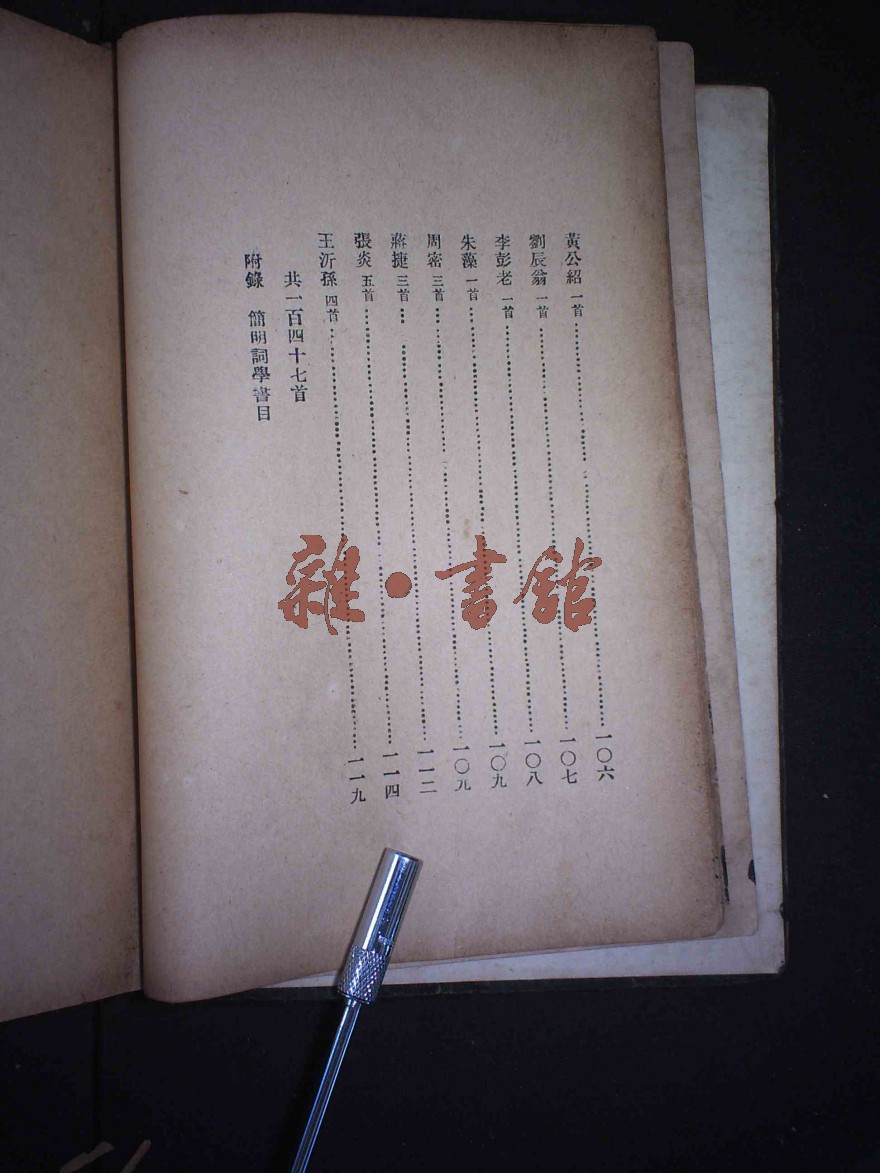 黃公紹 一首……一〇六
劉辰翁 一首……一〇七
李彭老 一首……一〇八
朱藻 一首……一〇九
周密 三首……一〇九
蔣捷 三首……一一二
張炎 五首……一一四
王沂孫 四首……一一九
共一百四十七首
附錄 簡明詞學書目
雜·書館